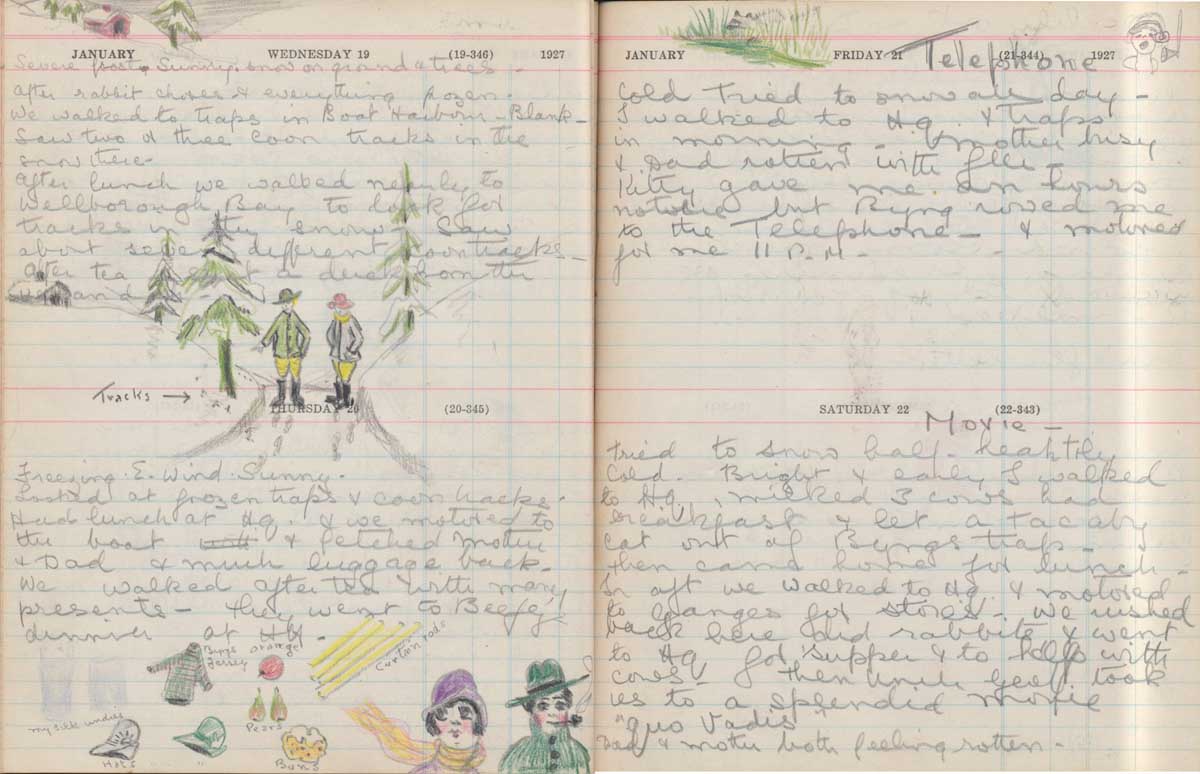 JANUARY WEDNESDAY 19 (19-346) 1927
Severe frost. Sunny. snow on ground & trees -
After rabbit chores & everything frozen.
We walked to traps in Boat Harbour - Blank -
Saw two or three Coon tracks in the
snow there -
After lunch we walked nearly to
Wellborough Bay to look for
tracks in the snow - Saw
about seven different Coon tracks -
After tea a duck from the
Tracks →
THURSDAY 20 (20-345)
Freezing. E. Wind. Sunny.
Looked at frozen traps & coon tracks.
Had lunch at Hq. & we motored to
the boat & fetched Mother
& Dad & much luggage back.
We walked after tea with many
presents - They went to
dinner at
Byng's Jersey
orange
Curtain rods
my silk undies
Hats
"
Pears
Buns
JANUARY FRIDAY 21 (21-344) 1927
Telephone
Cold Tried to snow all day -
I walked to Hq. & traps
in morning - Mother busy
& Dad rotten with flu -
Kitty gave me an hours
notice but Byng rowed me
to the Telephone - & motored
for me 11 P.M.
SATURDAY 22 (22-343)
Movie -
Tried to snow half-heartily
Cold. Bright & early I walked
to Hq, milked 3 cows had
breakfast & let a
cat out of Byngs trap -
Then came home for lunch -
In aft we walked to Hq. & motored
to Ganges for stores - we rushed
back here did rabbits & went
to Hq for supper & to help with
cows - Then Uncle Geoff took
us to a splendid movie
"Quo Vadis"
Dad & mother both feeling rotten -